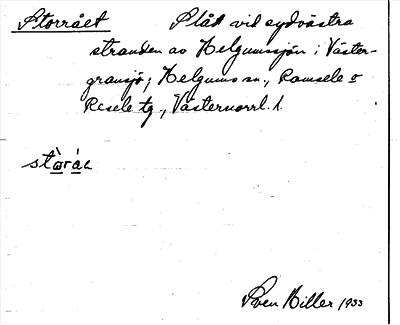 Storrået Slåt vid sydvästra
stranden av Helgumssjön i Väster-
gransjö; Helgums sn., Ramsele o
Resele tg., Västernorrl. l.
stòráe
Sven Hiller 1933